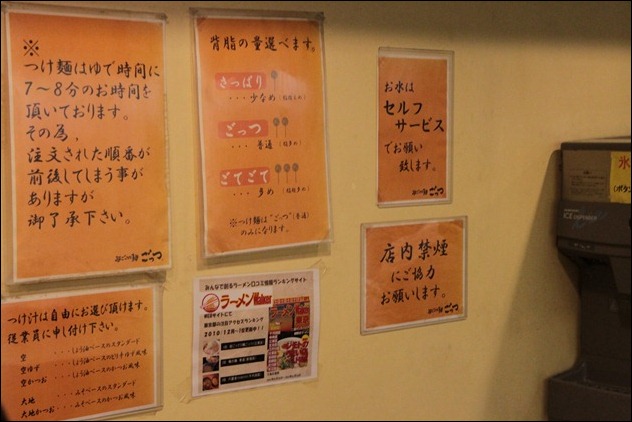 ※
つけ麺はゆで時間に
7〜8分のお時間を
頂いております。
その為、
注文された順番が
前後してしまう事が
ありますが
御了承下さい。
ごっつ
背脂の量選べます。
さっぱり
・・・少なめ
ごっつ
・・・普通
ごてごて
・・・多め
※つけ麺は"ごっつ"(普通)
のみになります。
お水は
セルフ
サービス
でお願い
致します。
ごっつ
店内禁煙
にご協力
お願いします。
ごっつ
つけ汁は自由にお選び頂けます。
従業員に申し付け下さい。
空 ・・・しょう油ベースのスタンダード
空ゆず ・・・しょう油ベースのピリ辛ゆず風味
空かつお・・・しょう油ベースのかつお風味
大地 ・・・みそベースのスタンダード
大地かつお・・・みそベースのかつお風味
みんなで創るラーメン口コミ情報ランキングサイト
ラーメンWalker
WEBサイトにて
東京都の注目アクセスランキング
2010/12月~1位更新中!!
氷